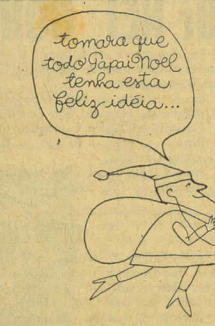 tomara que
todo Papai Noel
tenha esta
feliz idéia...